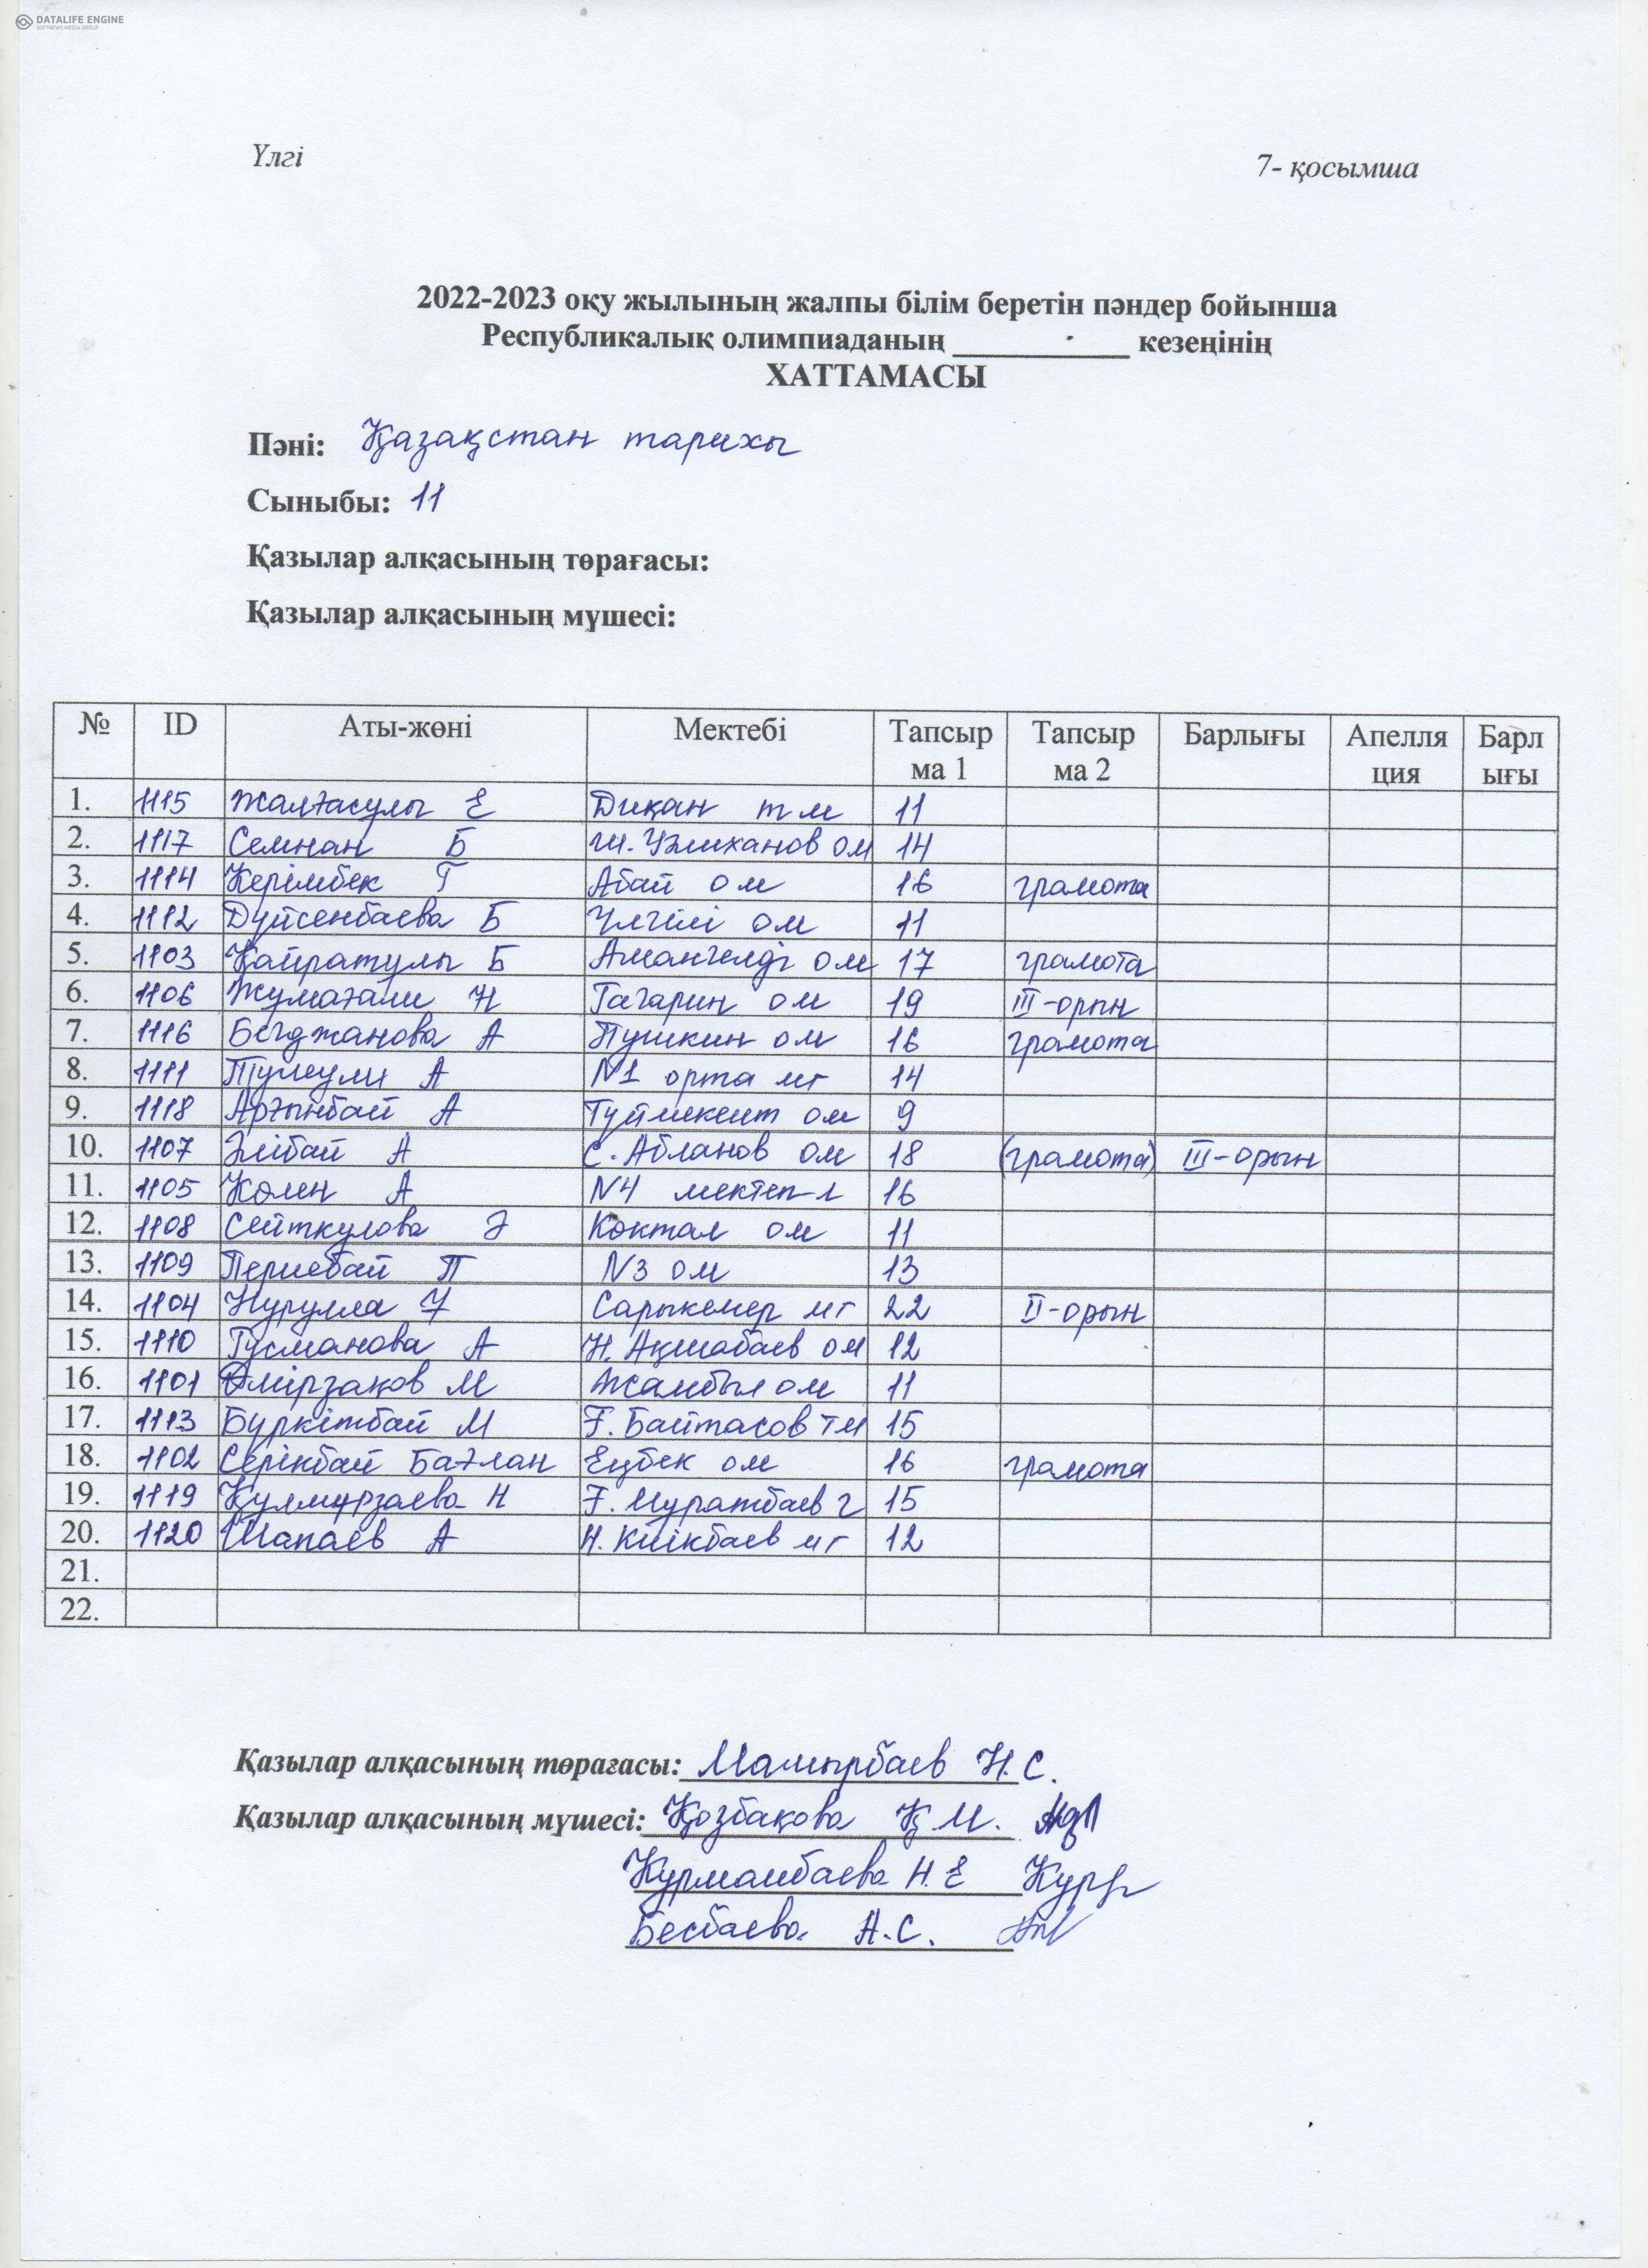 DATALIFE ENGINE
SOFTNEWS MEDIA GROUP
Үлгі
7- қосымша
2022-2023 оқу жылының жалпы білім беретін пәндер бойынша
Республикалық олимпиаданың ____________ кезеңінің
ХАТТАМАСЫ
Пәні: Қазақстан тарихы
Сыныбы: 11
Қазылар алқасының төрағасы:
Қазылар алқасының мүшесі:
№ ID Аты-жөні Мектебі Тапсырма 1 Тапсырма 2 Барлығы Апелляция Барлығы
1. 1115 Жалғасұлы Е Диқан тм 11
2. 1117 Семнан Б Ш. Уәлиханов ом 14
3. 1114 Керімбек Г Абай ом 16 грамота
4. 1112 Дүйсенбаева Б Үлгілі ом 11
5. 1103 Қайратұлы Б Амангелді ом 17 грамота
6. 1106 Жұмағали Н Гагарин ом 19 III-орын
7. 1116 Бегджанова А Пушкин ом 16 грамота
8. 1111 А N1 орта мг 14
9. 1118 Арғынбай А Түймекент ом 9
10. 1107 Әлібай А С. Абланов ом 18 (грамота) III-орын
11. 1105 Көлен А N4 мектеп-л 16
12. 1108 Сейткулова Э Көктал ом 11
13. 1109 Пернебай П N3 ом 13
14. 1104 Нурулла У Сарыкемер мг 22 II-орын
15. 1110 Гусманова А Н. Ақшабаев ом 12
16. 1101 Өмірзақов М Жамбыл ом 11
17. 1113 Бүркітбай М Ғ. Байтасов тм 15
18. 1102 Серікбай Бағлан Еңбек ом 16 грамота
19. 1119 Құлмурзаева Н Ғ. Мұратбаев г 15
20. 1120 Шапаев А Н. Киікбаев мг 12
21.
22.
Қазылар алқасының төрағасы: Мамырбаев Н.С.
Қазылар алқасының мүшесі: Қозбақова Қ.М.
Курманбаева Н.Е
Бесбаева А.С.